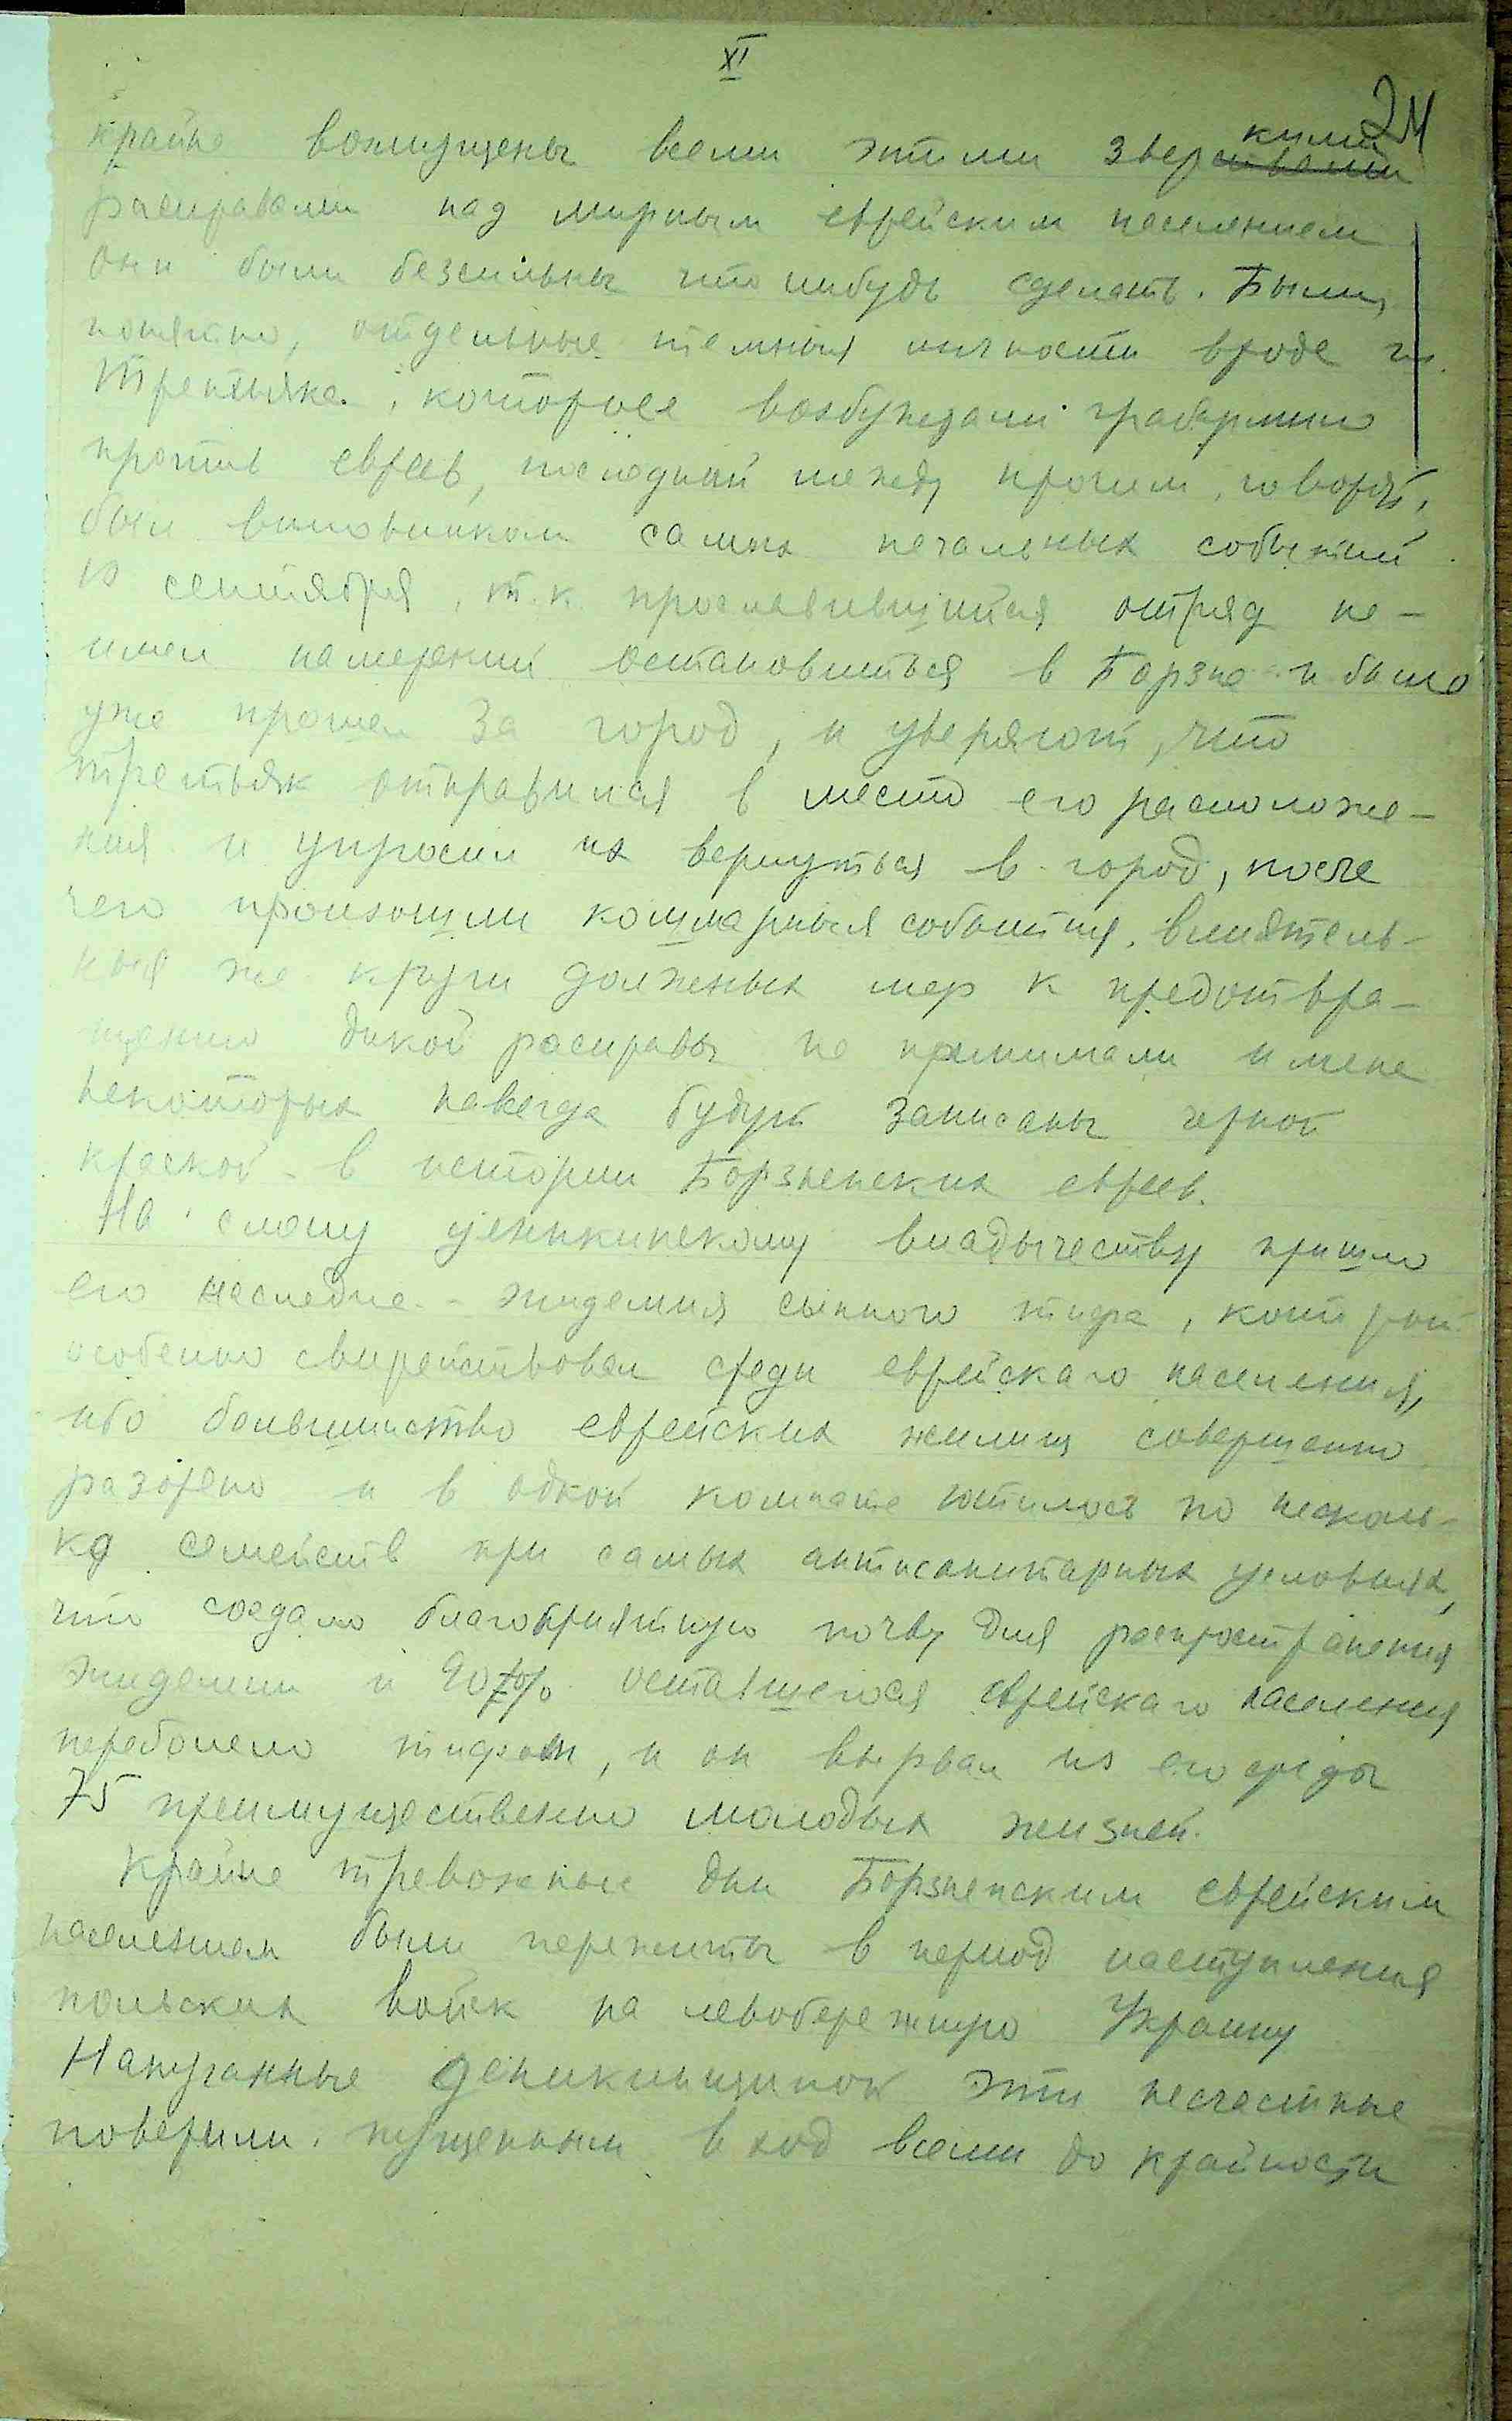 XI
24
крайне возмущены всеми этими зверскими
расправами над мирным еврейским населением
они были безсильны что нибудь сделать. Были,
понятно, отдельные темныя личности вроде
Третьяка, которые возбуждали
против евреев, последний между прочим, говорят,
был виновником самых печальных событий
10 сентября, т.к. прославившийся отряд не-
имел намерений остановиться в Борзне и было
уже прошел за город, и уверяют, что
третьяк отправился в место его расположе-
ния и упросил их вернуться в город, после
чего произошли кошмарныя события, влиятель-
ныя же круги должных мер к предотвра-
щению дикой расправы не принимали и мена
некоторых навсегда будут записаны черной
краской в истории Борзненских евреев.
На смену деникинскому владычеству пришло
его наследие - эпидемия сыпного тифа, который
особенно свирепствовал среди еврейскаго населения,
ибо большинство еврейских жилищ совершенно
разорено и в одной комнате ютилось по несколь-
ко семейств при самых антисанитарных условиях,
что создало благоприятную почву для распространения
эпидемии и 90% оставшегося еврейскаго населения
переболело тифом, и он вырвал из его среды
75 преимущественно молодых жизней.
Крайне тревожные дни Борзненским еврейским
населением были пережиты в период наступления
польских войск на левобережную Украину
Напуганные деникинщиной эти несчастные
поверили, пущенным в ход всеми до крайности